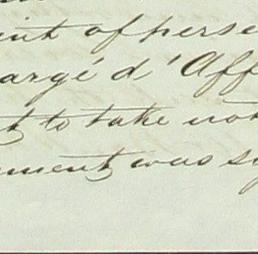 of perse
argé d'Aff
to take not
ment was sig